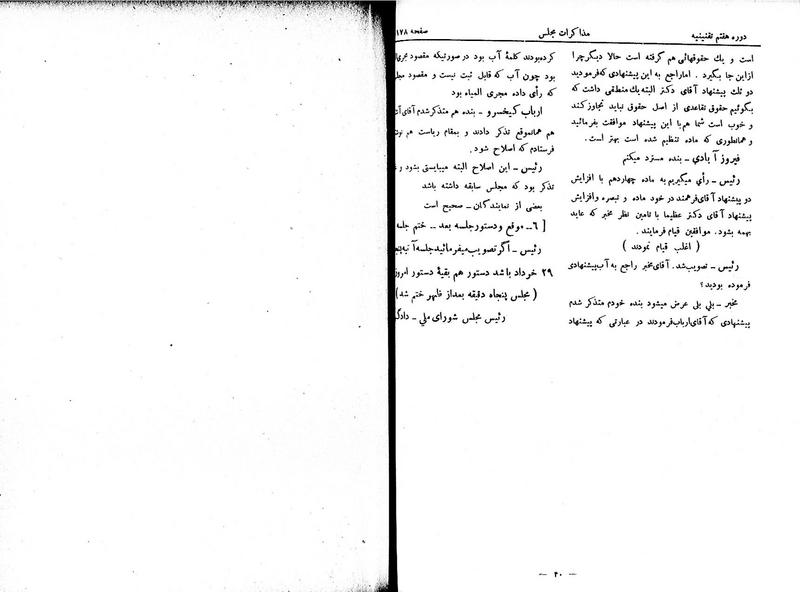 دوره هفتم تقنینیه
مذاکرات مجلس
صفحه ۱۷۸
است و یك حقوقهائی هم گرفته است حالا دیگرچرا
ازاین جا بگیرد . اماراجع به این پیشنهادی که فرمودید
دو تك پیشنهاد آقای دکتر البته یك منطقی داشت که
بگوئیم حقوق تقاعدی از اصل حقوق نباید تجاوز کند
و خوب است شما هم با این پیشنهاد موافقت بفرمائید
و همانطوری که ماده تنظیم شده است بهتر است .
فیروز آبادی ـ بنده مسترد میکنم
رئیس ـ رأی میگیریم به ماده چهاردهم با افزایش
دو پیشنهاد آقای فرهمند در خود ماده و تبصره و افزایش
پیشنهاد آقای دکتر عظیما با تامین نظر مخبر که عاید
بهمه بشود . موافقین قیام فرمایند .
( اغلب قیام نمودند )
رئیس ـ تصویب شد. آقای مخبر راجع به آب پیشنهادی
فرموده بودید ؟
مخبر ـ بلی بلی عرض میشود بنده خودم متذکر شدم
پیشنهادی که آقای ارباب فرمودند در عبارتی که پیشنهاد
کرده بودند کلمهٔ آب بود در صورتیکه مقصود مجری
بود چون آب که قابل ثبت نیست و مقصود
که رأی داده مجری المیاه بود
ارباب کیخسرو ـ بنده هم متذکر شدم آقای
هم همانموقع تذکر دادند و بمقام ریاست هم
فرستادم که اصلاح شود .
رئیس ـ این اصلاح البته میبایستی بشود و
تذکر بود که مجلس سابقه داشته باشد
بعضی از نمایندکان ـ صحیح است
[ ۶ ـ موقع و دستور جلسه بعد ـ ختم جلسه
رئیس ـ اگر تصویب میفرمائید جلسه آتیه
۲۹ خرداد باشد دستور هم بقیهٔ دستور امروز
( مجلس پنجاه دقیقه بعداز ظهر ختم شد )
رئیس مجلس شورای ملی ـ دادگر
— ۲۰ —